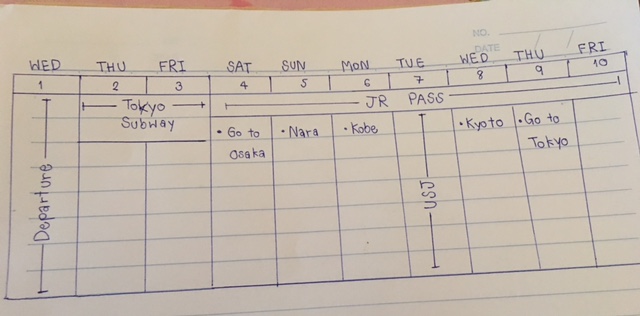 NO.
DATE / /
WED THU FRI SAT SUN MON TUE WED THU FRI
1 2 3 4 5 6 7 8 9 10
Departure
Tokyo
Subway
JR PASS
• Go to
Osaka
• Nara
• Kobe
USJ
• Kyoto
• Go to
Tokyo